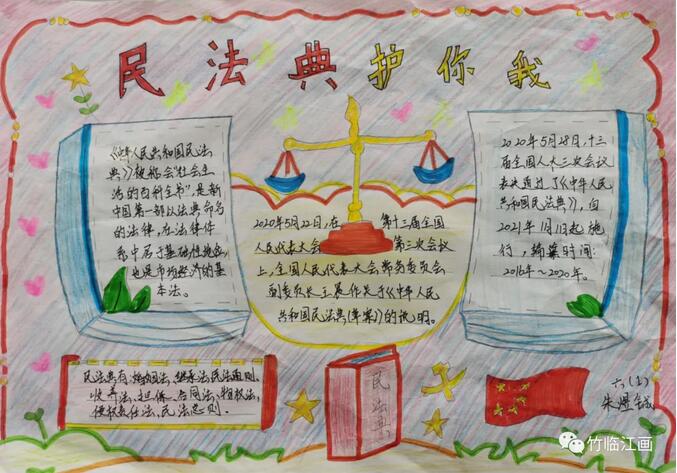 民法典护你我
《中华人民共和国民法
典》被称会"社会生
活的百科全书",是新
中国第一部以法典命名
的法律,在法律体
系中居于基础性地位,
也是市场经济的基
本法。
2020年5月22日,在第十三届全国
人民代表大会第三次会议
上,全国人民代表大会常务委员会
副委员长王晨作关于《中华人民
共和国民法典(草案)》的说明。
2020年5月28日,十三
届全国人大三次会议
表决通过了《中华人民
共和国民法典》,自
2021年1月1日起施
行,编纂时间:
2016年~2020年。
民法典有:婚姻法、继承法、民法通则、
收养法、担保、合同法、物权法、
侵权责任法、民法总则。
民法典
六(1)
竹临江画